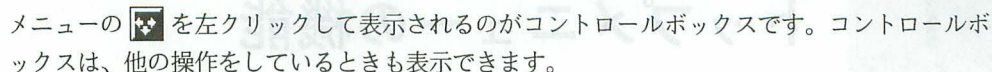 メニューの を左クリックして表示されるのがコントロールボックスです。コントロールボ
ックスは、他の操作をしているときも表示できます。